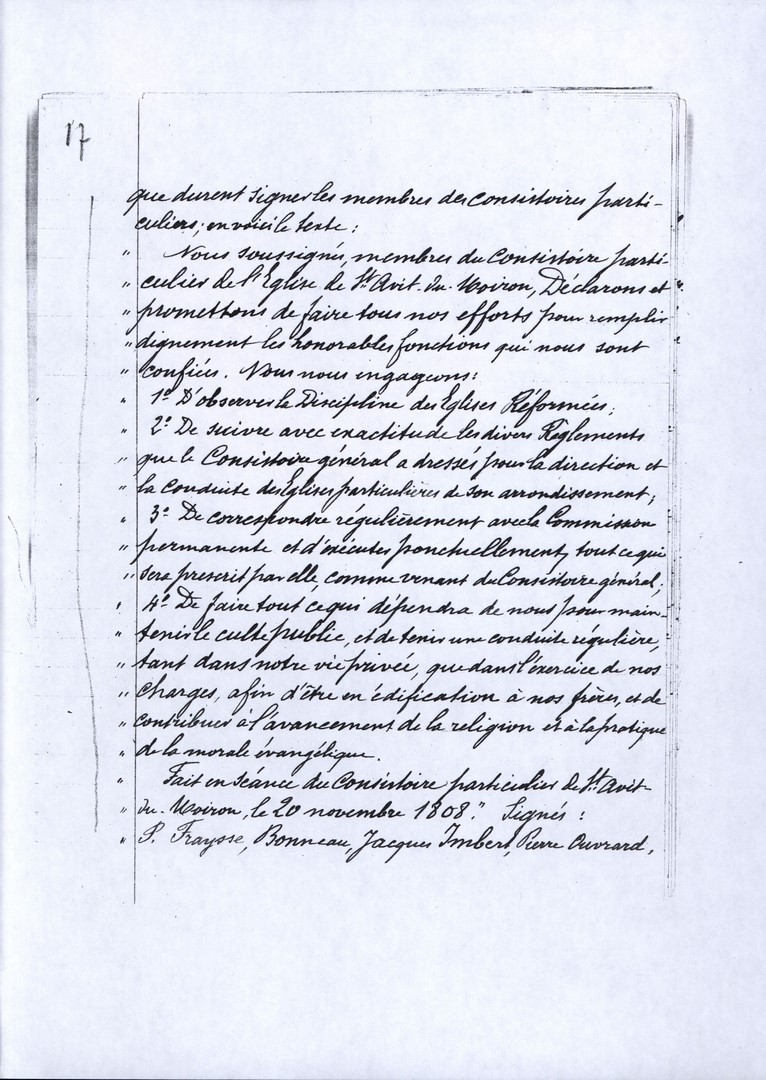 17
que durent signer les membres des consistoires parti-
culiers; en voici le texte :
" Nous soussignés, membres du Consistoire parti-
" culier de l'Eglise de St Avit-du-Moiron, Déclarons et
" promettons de faire tous nos efforts pour remplir
" dignement les honorables fonctions qui nous sont
" confiées. Nous nous engageons :
" 1º D'observer la Discipline des Eglises Réformées ;
" 2º De suivre avec exactitude les divers Règlements
" que le Consistoire général a dressés pour la direction et
" la conduite des Eglises particulières de son arrondissement ;
" 3º De correspondre régulièrement avec la Commission
" permanente et d'exécuter ponctuellement, tout ce qui
" sera prescrit par elle, comme venant du Consistoire général ;
" 4º De faire tout ce qui dépendra de nous pour main-
" tenir le culte public, et de tenir une conduite régulière,
" tant dans notre vie privée, que dans l'exercice de nos
" Charges, afin d'être en édification à nos frères, et de
" contribuer à l'avancement de la religion et à la pratique
" de la morale évangélique.
" Fait en séance du Consistoire particulier de St Avit-
" du-Moiron, le 20 novembre 1808." Signés :
" P. Fraysse, Bonneau, Jacques Imbert, Pierre Ouvrard,